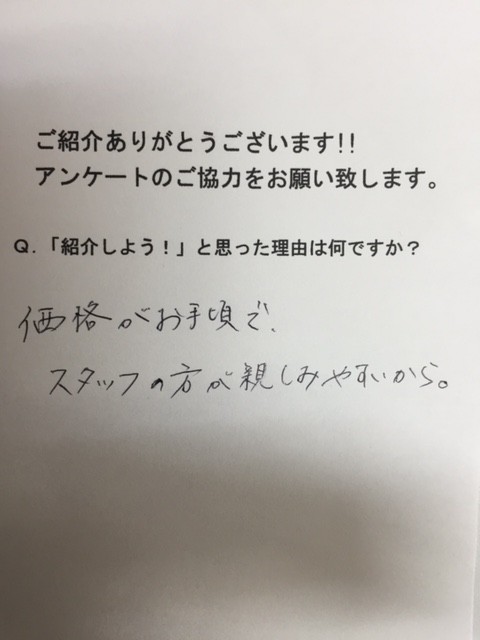 ご紹介ありがとうございます!!
アンケートのご協力をお願い致します。
Q.「紹介しよう！」と思った理由は何ですか？
価格がお手頃で、
スタッフの方が親しみやすいから。